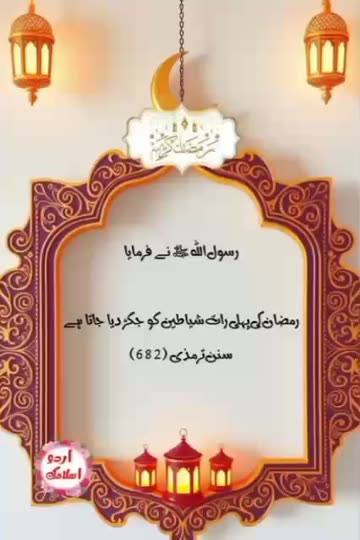 رمضان كريم
رسول اللہ ﷺ نے فرمایا
رمضان کی پہلی رات شیاطین کو جکڑ دیا جاتا ہے
سنن ترمذی (682)
اردو
اسلامک